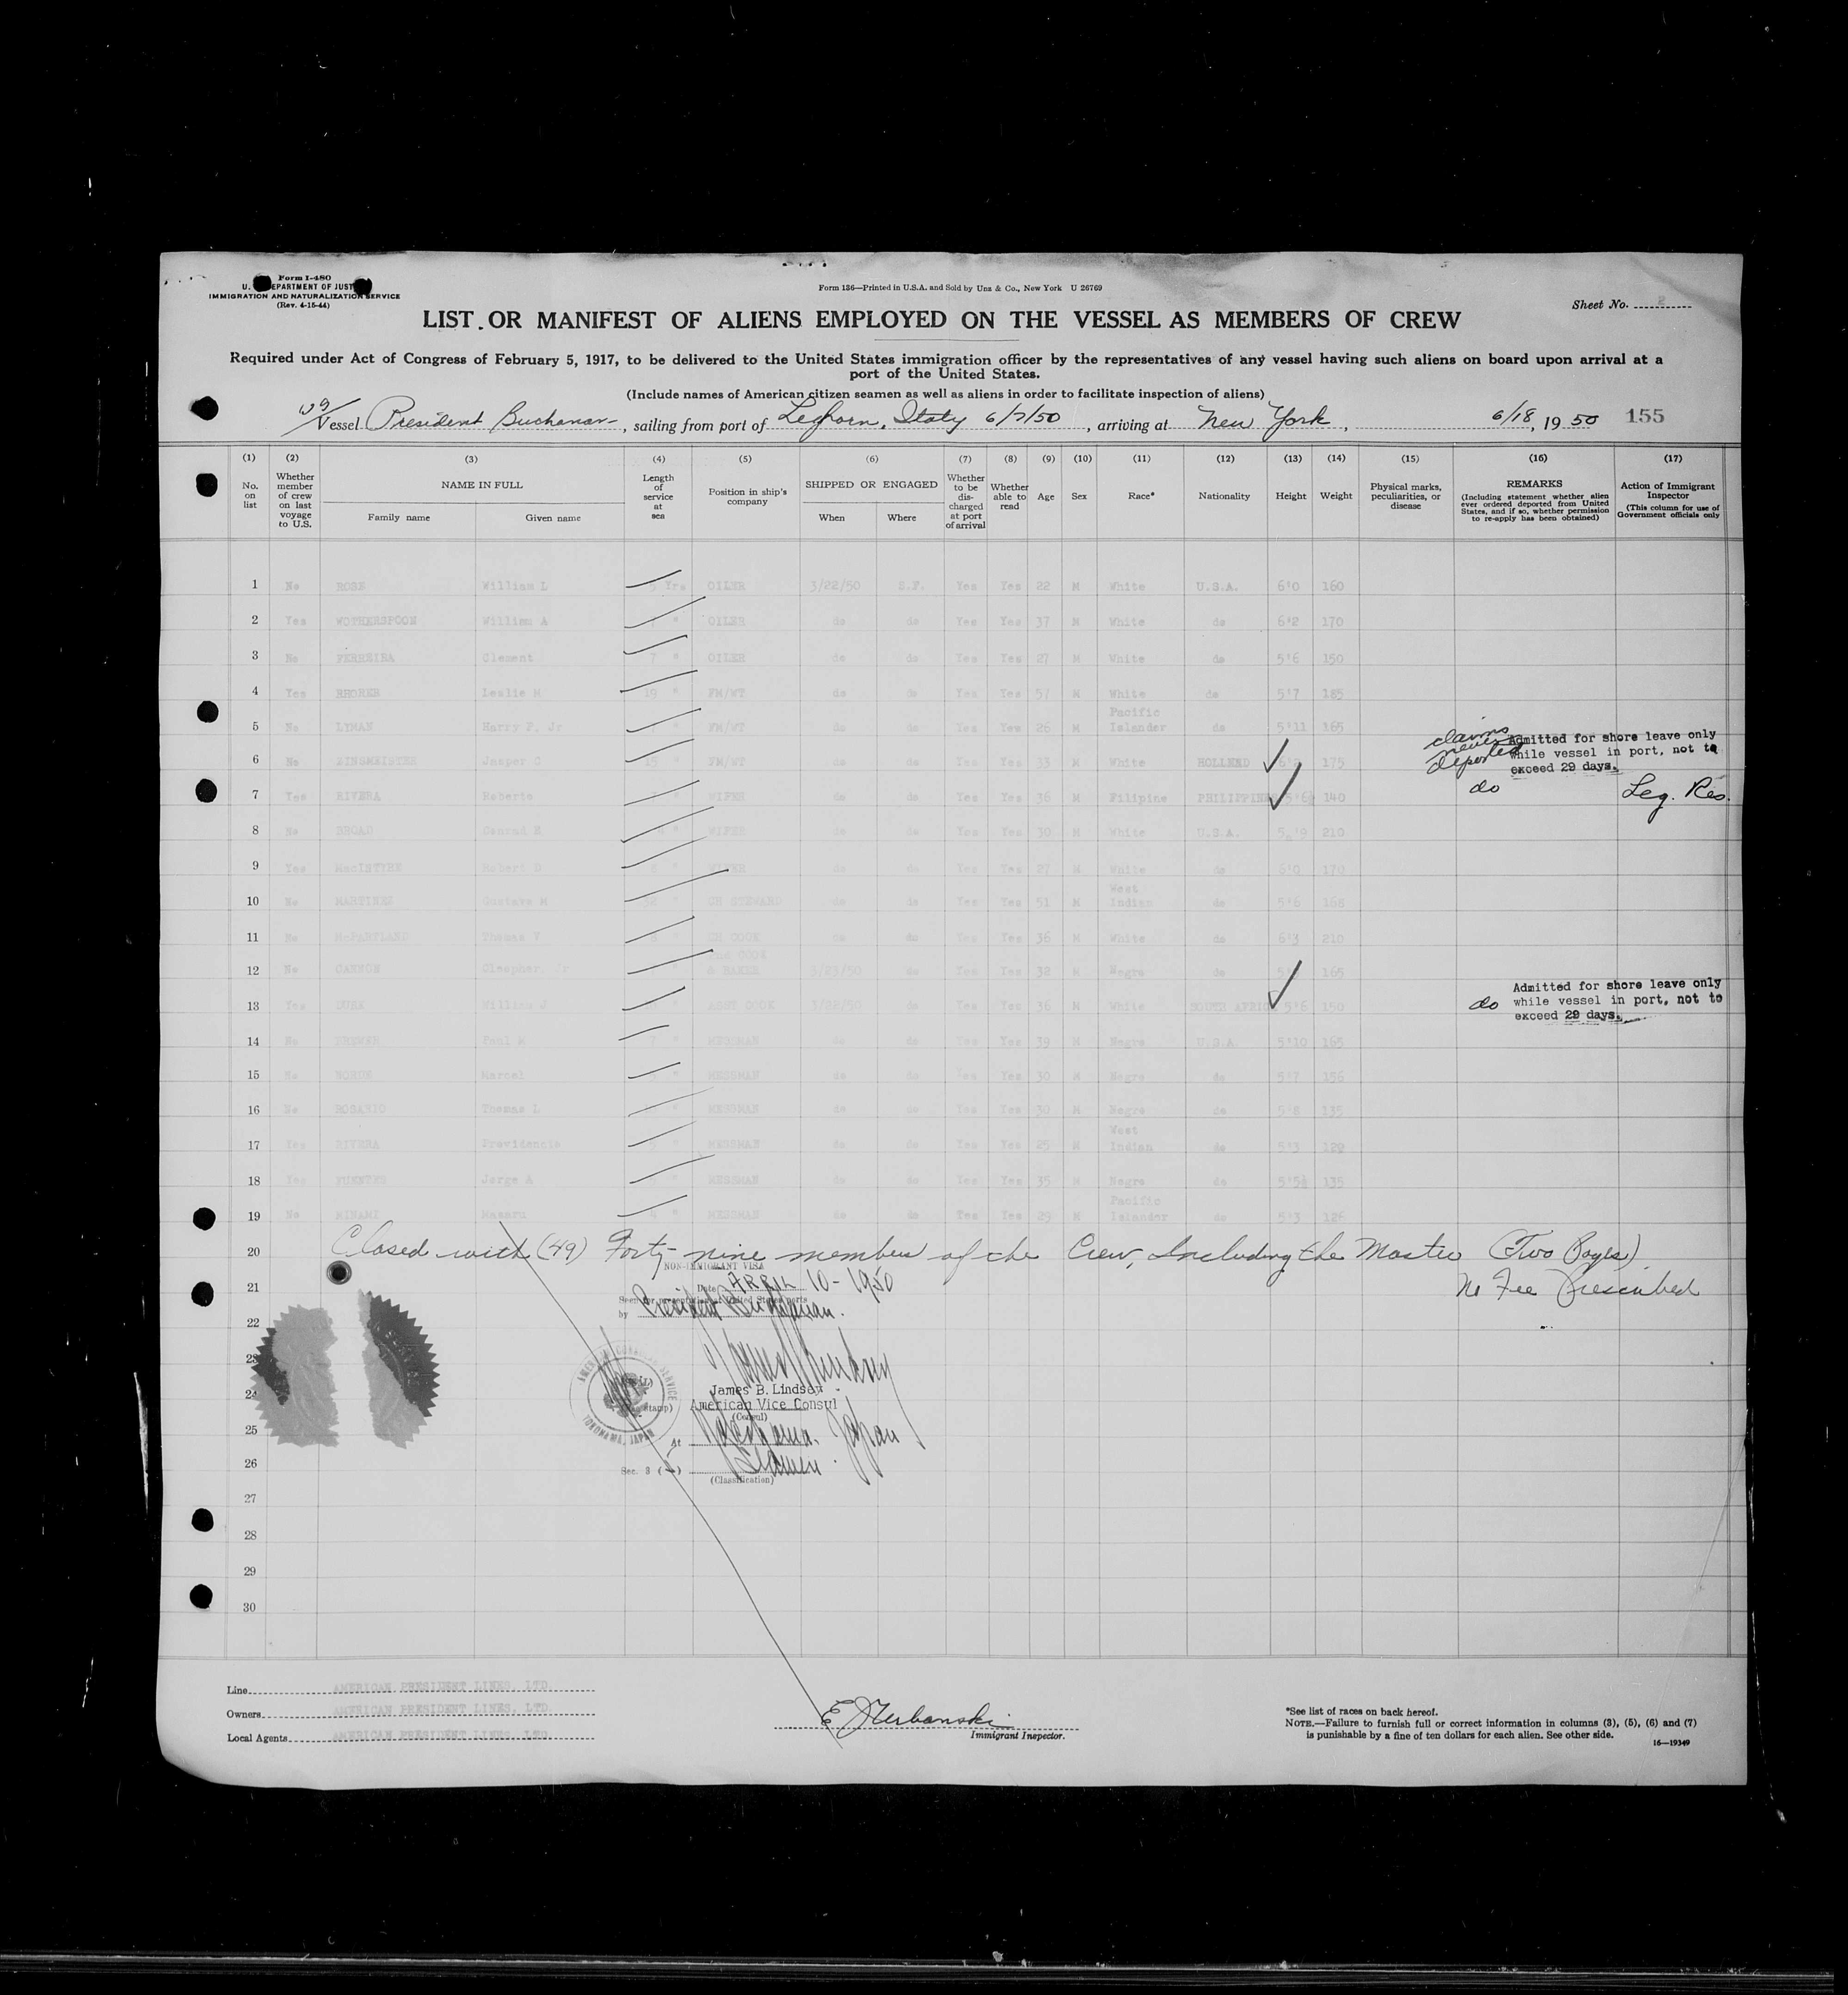 Form I-480
U. DEPARTMENT OF JUST
IMMIGRATION AND NATURALIZATION SERVICE
(Rev. 4-15-44)
Form 136—Printed in U.S.A. and Sold by Unz & Co., New York U 26769
Sheet No. 2
LIST OR MANIFEST OF ALIENS EMPLOYED ON THE VESSEL AS MEMBERS OF CREW
Required under Act of Congress of February 5, 1917, to be delivered to the United States immigration officer by the representatives of any vessel having such aliens on board upon arrival at a
port of the United States.
(Include names of American citizen seamen as well as aliens in order to facilitate inspection of aliens)
Vessel President Buchanan, sailing from port of Leghorn, Italy 6/7/50, arriving at New York, 6/18, 1950 155
(1) (2) (3) (4) (5) (6) (7) (8) (9) (10) (11) (12) (13) (14) (15) (16) (17)
No. on list
Whether member of crew on last voyage to U.S.
NAME IN FULL
Family name
Given name
Length of service at sea
Position in ship's company
SHIPPED OR ENGAGED
When
Where
Whether to be discharged at port of arrival
Whether able to read
Age
Sex
Race*
Nationality
Height
Weight
Physical marks, peculiarities, or disease
REMARKS
(Including statement whether alien ever ordered deported from United States, and if so, whether permission to re-apply has been obtained)
Action of Immigrant Inspector
(This column for use of Government officials only
1 No ROSE William L Yrs OILER 3/22/50 S.F. Yes Yes 22 M White U.S.A. 6'0 160
2 Yes WOTHERSPOON William A " OILER do do Yes Yes 37 M White do 6'2 170
3 No FERREIRA Clement 7 " OILER do do Yes Yes 27 M White do 5'6 150
4 Yes RHORER Leslie M 19 " FM/WT do do Yes Yes 57 M White do 5'7 185
5 No LYMAN Harry P. Jr " FM/WT do do Yes Yes 26 M Pacific Islander do 5'11 165
6 No Jasper C 15 " FM/WT do do Yes Yes 33 M White HOLLEND 175 claims never deported Admitted for shore leave only while vessel in port, not to exceed 29 days.
7 Yes RIVERA Roberto WIPER do do Yes Yes 36 M Filipino PHILIPPINE 5'6½ 140 do Leg. Res.
8 No BROAD Conrad E " WIPER do do Yes Yes 30 M White U.S.A. 5'9 210
9 Yes MacINTYRE Robert D " WIPER do do Yes Yes 27 M White do 6'0 170
10 No MARTINEZ Gustavo M " CH STEWARD do do Yes Yes 51 M West Indian do 5'6 168
11 No McPARTLAND Thomas " CH COOK do do Yes Yes 36 M White do 6'3 210
12 No CANNON Cleopher, Jr COOK & BAKER 3/23/50 do Yes Yes 38 M Negro do 165
13 Yes William J " ASST COOK 3/22/50 do Yes Yes 36 M White SOUTH AFRIC 5'6 150 do Admitted for shore leave only while vessel in port, not to exceed 29 days.
14 No BREWER Paul 7 " MESSMAN do do Yes Yes 39 M Negro U.S.A. 5'10 165
15 No Marcel " MESSMAN do do Yes Yes 30 M Negro do 5'7 156
16 No ROSARIO Thomas L " MESSMAN do do Yes Yes 30 M Negro do 5'8 135
17 Yes RIVERA Providencio " MESSMAN do do Yes Yes 25 M West Indian do 5'3
18 Yes FUENTES Jorge A MESSMAN do do Yes Yes 35 M Negro do 5'5½ 135
19 No MINAMI Masaru 4 " MESSMAN do do Yes Yes 29 M Pacific Islander do 5'3 126
20 Closed with (49) Forty-nine members of the Crew, Including the Master (Two Pages)
NON-IMMIGRANT VISA
21 Date APRIL 10-1950 No Fee Prescribed
Seen for presentation at United States ports
by President Buchanan.
22
23
24
James B. Lindsey
American Vice Consul
(Consul)
AMERICAN CONSULAR SERVICE
YOKOHAMA, JAPAN
25
At Yokohama. Japan
26
Sec. 3 ( ) Seamen.
(Classification)
27
28
29
30
Line AMERICAN PRESIDENT LINES, LTD.
Owners AMERICAN PRESIDENT LINES, LTD.
Local Agents AMERICAN PRESIDENT LINES, LTD.
Immigrant Inspector.
*See list of races on back hereof.
NOTE.—Failure to furnish full or correct information in columns (3), (5), (6) and (7)
is punishable by a fine of ten dollars for each alien. See other side.
16—19349